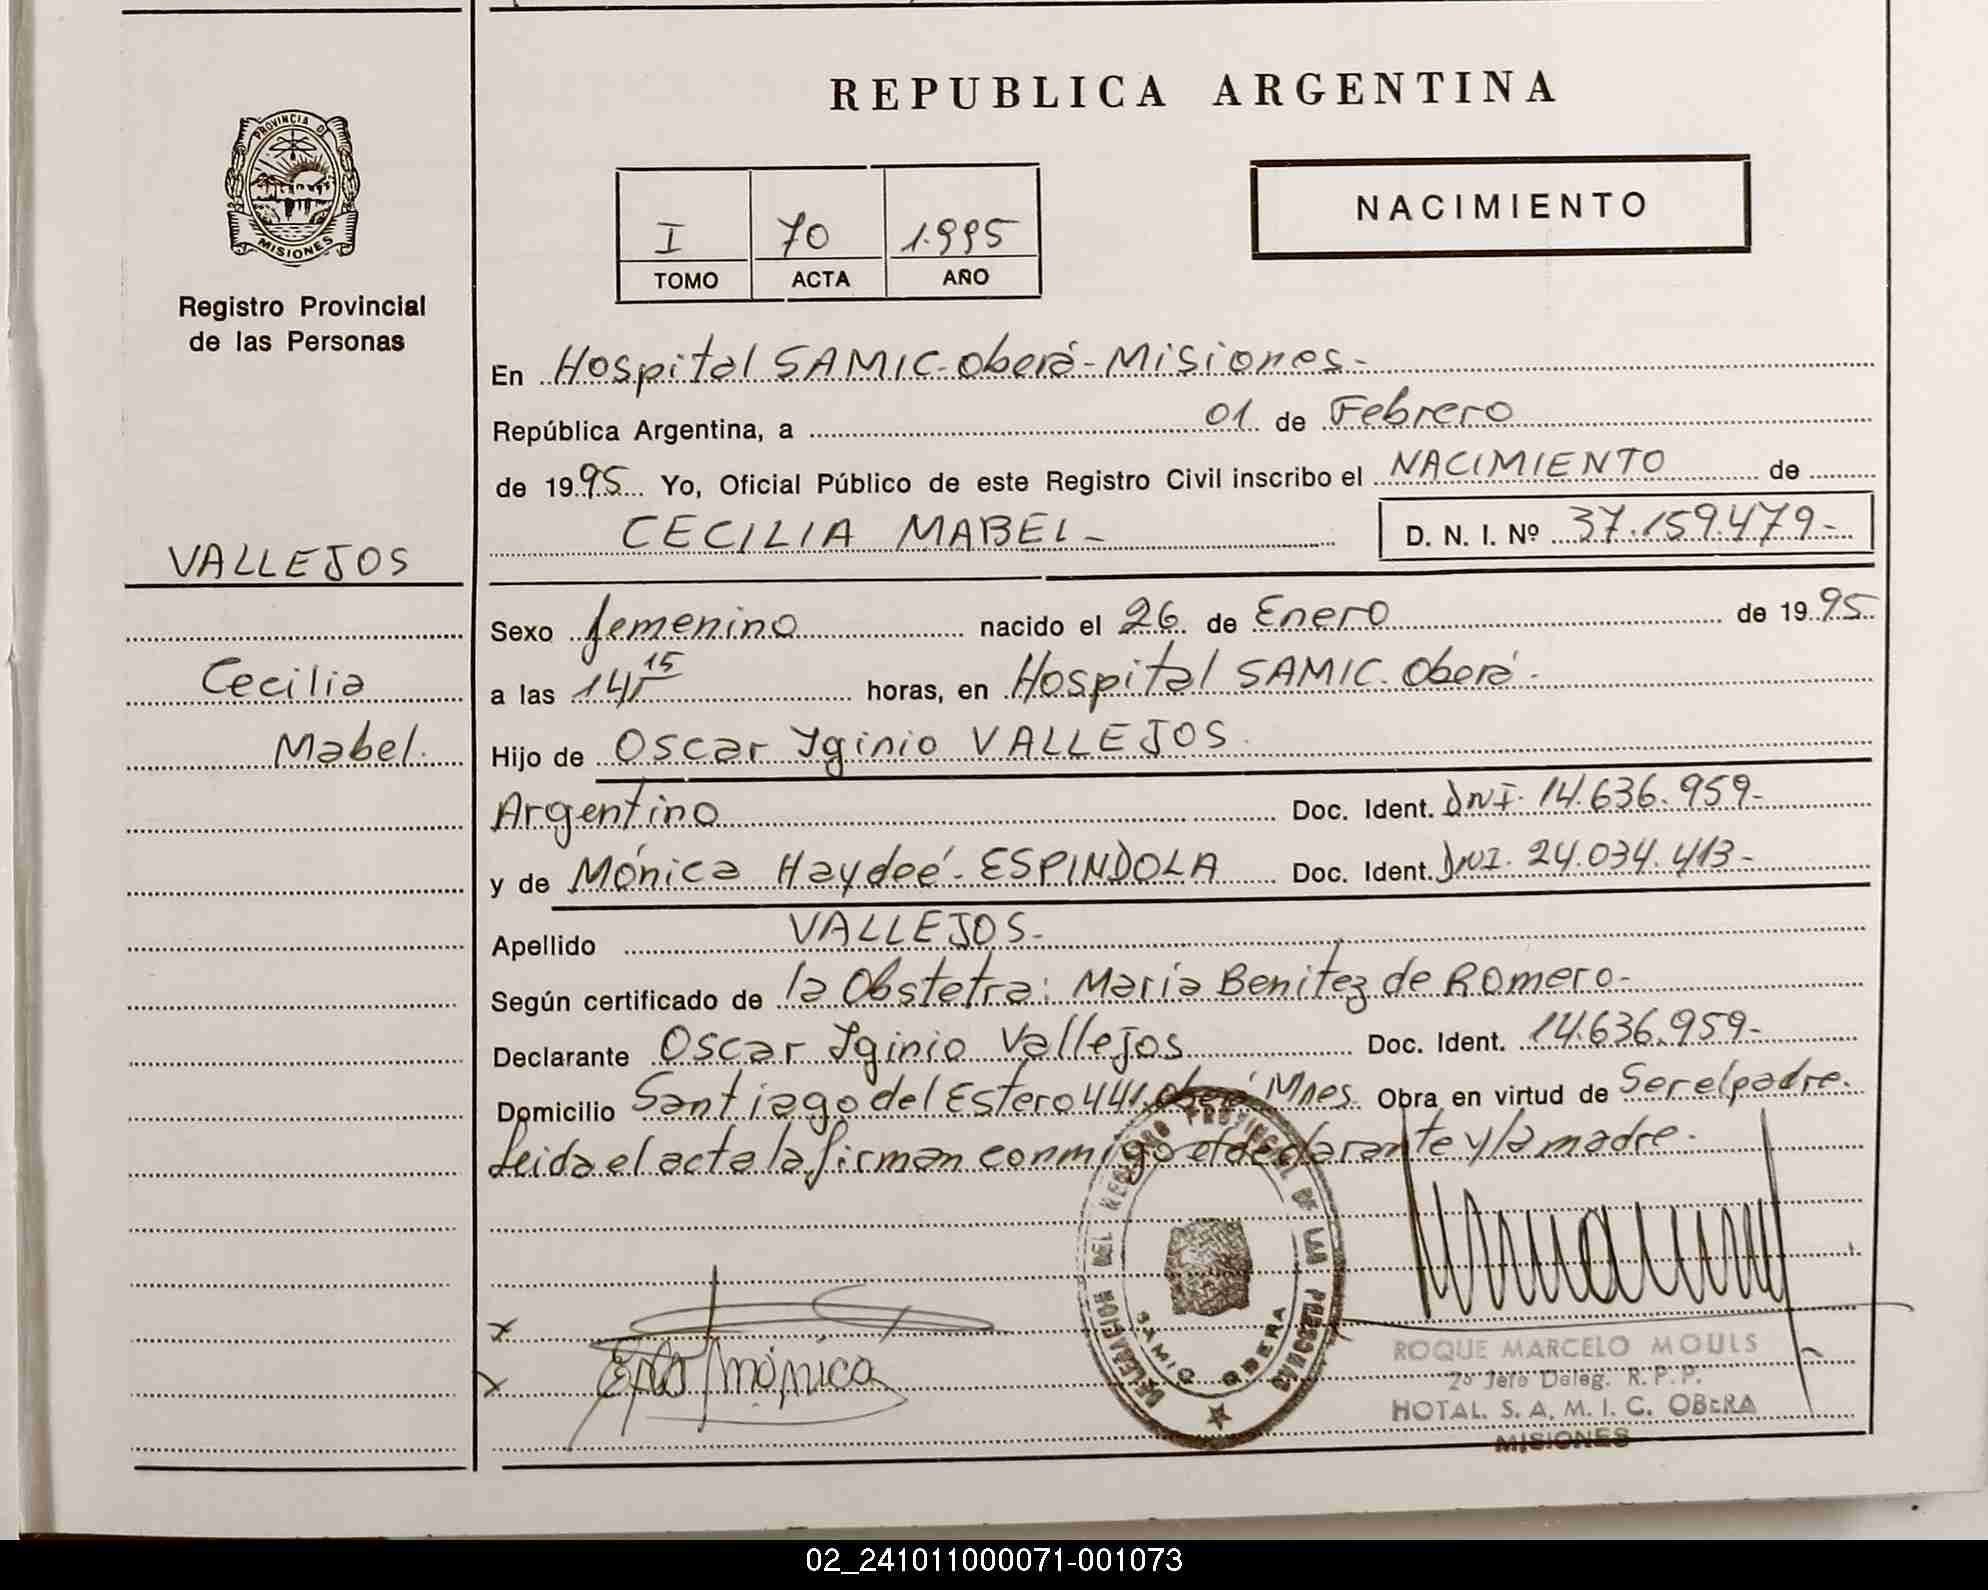 REPUBLICA ARGENTINA
PROVINCIA DE
MISIONES
Registro Provincial
de las Personas
I 70 1.995
TOMO ACTA AÑO
NACIMIENTO
En Hospital SAMIC-Oberá-Misiones-
República Argentina, a 01 de Febrero
de 1995 Yo, Oficial Público de este Registro Civil inscribo el NACIMIENTO de
CECILIA MABEL- D. N. I. Nº 37.159.479-
VALLEJOS
Sexo femenino nacido el 26 de Enero de 1995
Cecilia
a las 14,15 horas, en Hospital SAMIC. Oberá-
Mabel.
Hijo de Oscar Yginio VALLEJOS.
Argentino Doc. Ident. DNI. 14.636.959-
y de Mónica Haydeé-ESPINDOLA Doc. Ident. DNI. 24.034.413-
Apellido VALLEJOS-
Según certificado de la Obstetra: María Benitez de Romero-
Declarante Oscar Yginio Vallejos Doc. Ident. 14.636.959-
Domicilio Santiago del Estero 441.Oberá Mnes. Obra en virtud de Ser el padre.
Leida el acta la firman conmigo el declarante y la madre.
DELEGACION DEL REGISTRO PROVINCIAL DE LAS PERSONAS
SAMIC OBERA
x
x
Mónica
ROQUE MARCELO MOULS
2º Jefe Deleg. R. P. P.
HOTAL. S. A. M. I. C. OBERA
MISIONES
02_241011000071-001073